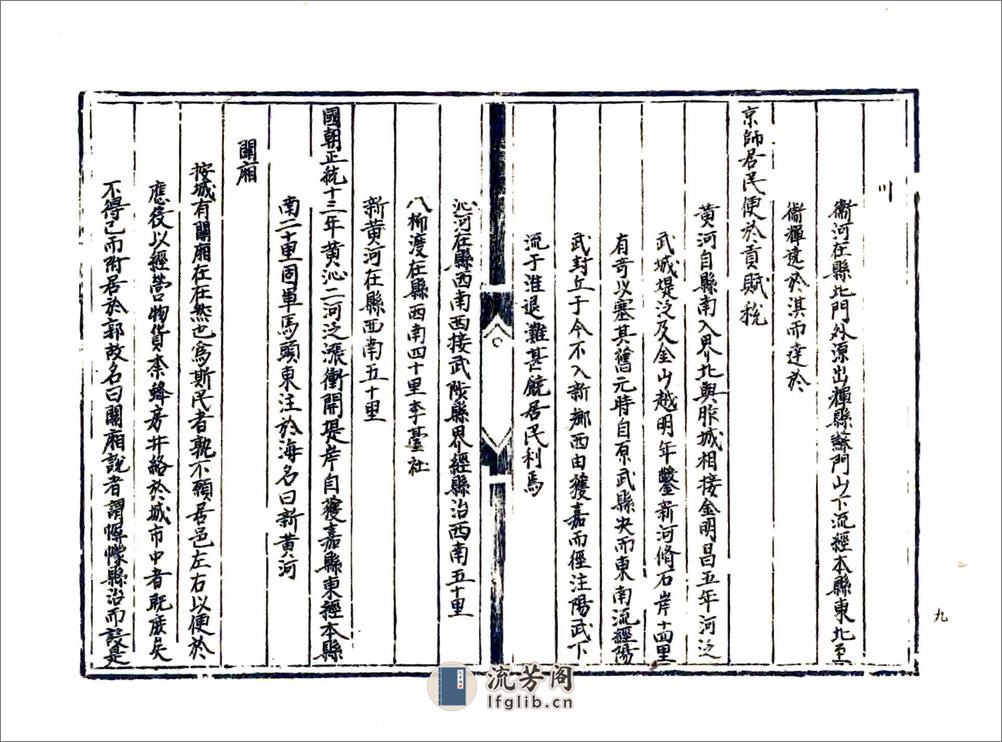 川
衞河在縣北門外源出輝縣蘇門山下流經本縣東北至
衞輝遶於淇而達於
京師居民便於貢賦稅
黃河自縣南入界北與胙城相接金明昌五年河泛
武城堤泛及金山越明年鑿新河脩石岸十四里
有奇以塞其舊元時自原武縣决而東南流經陽
武封丘于今不入新鄉西由獲嘉而徑注陽武下
流于淮退灘甚饒居民利焉
沁河在縣西南西接武陟縣界經縣治西南五十里
八柳渡在縣西南四十里李臺社
新黃河在縣西南五十里
國朝正統十三年黃沁二河泛漲衝開堤岸自獲嘉縣東經本縣
南二十里周軍馬頭東注於海名曰新黃河
關廂
按城有關廂在在然也爲斯民者孰不願居邑左右以便於
應役以經營物貨柰蜂房井絡於城市中者既庶矣
不得已而附居於郭故名曰關廂說者謂幈幪縣治而設是
九
流芳阁
lfglib.cn